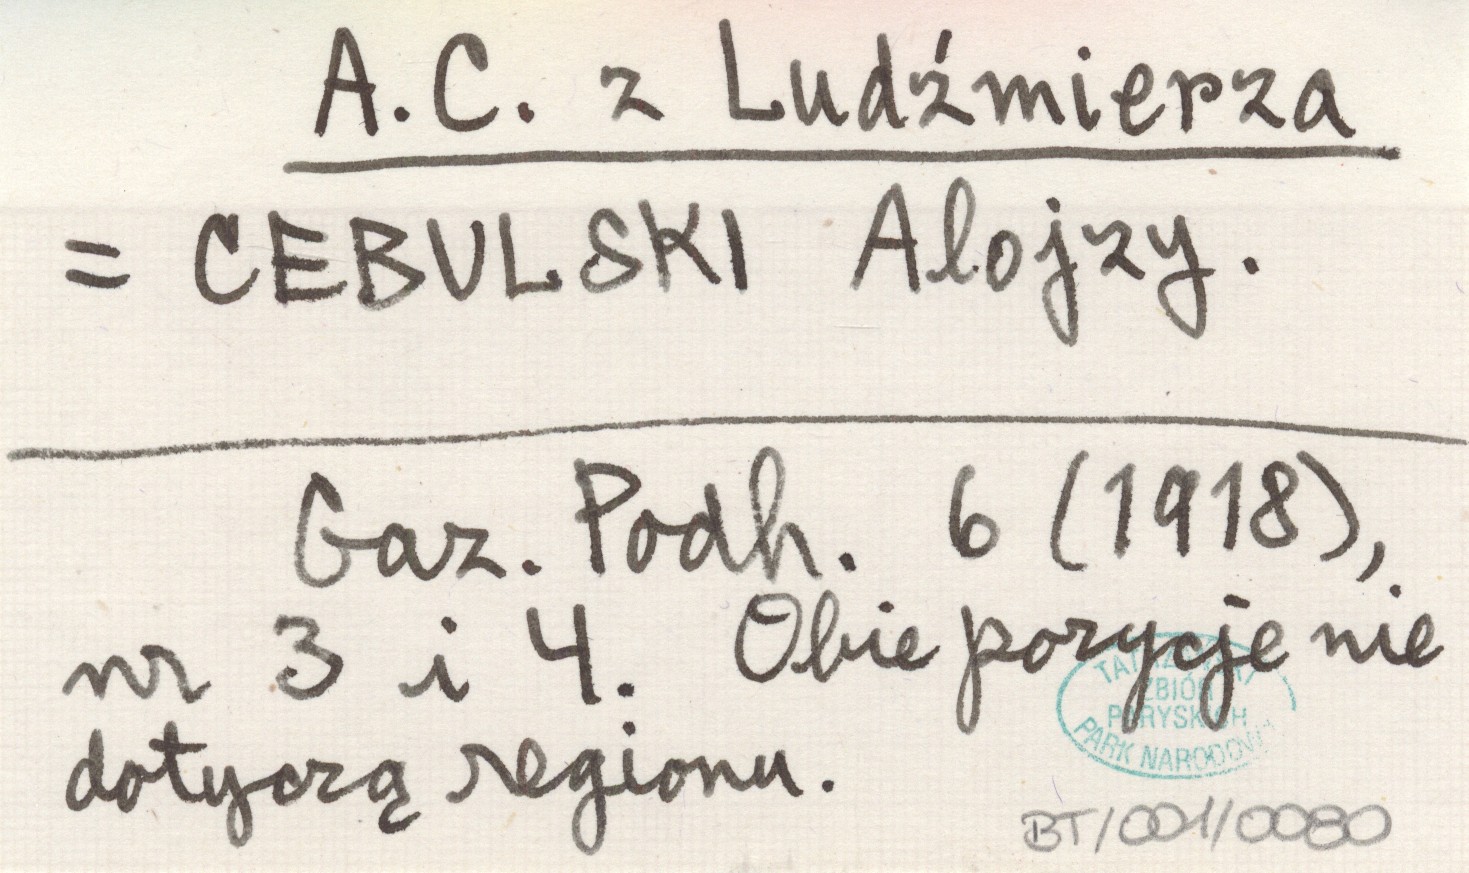 A.C. z Ludźmierza
= CEBULSKI Alojzy.
Gaz. Podh. 6 (1918),
nr 3 i 4. Obie pozycje nie
dotyczą regionu.
ZBIÓR
PARYSKICH
PARK NARODOWY
BT/001/0080